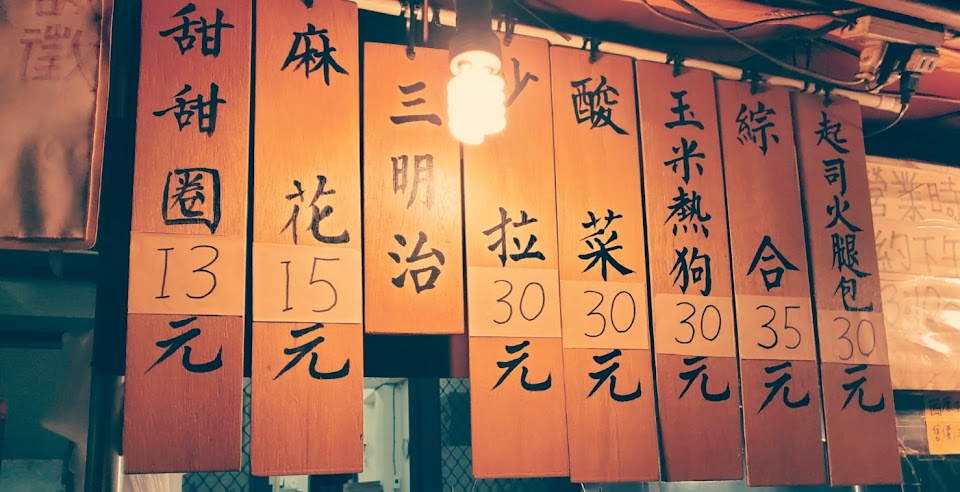 徵
甜甜圈
13
元
麻花
15
元
三明治
沙拉
30
元
酸菜
30
元
玉米熱狗
30
元
綜合
35
元
起司火腿包
30
元
營業時
約下午